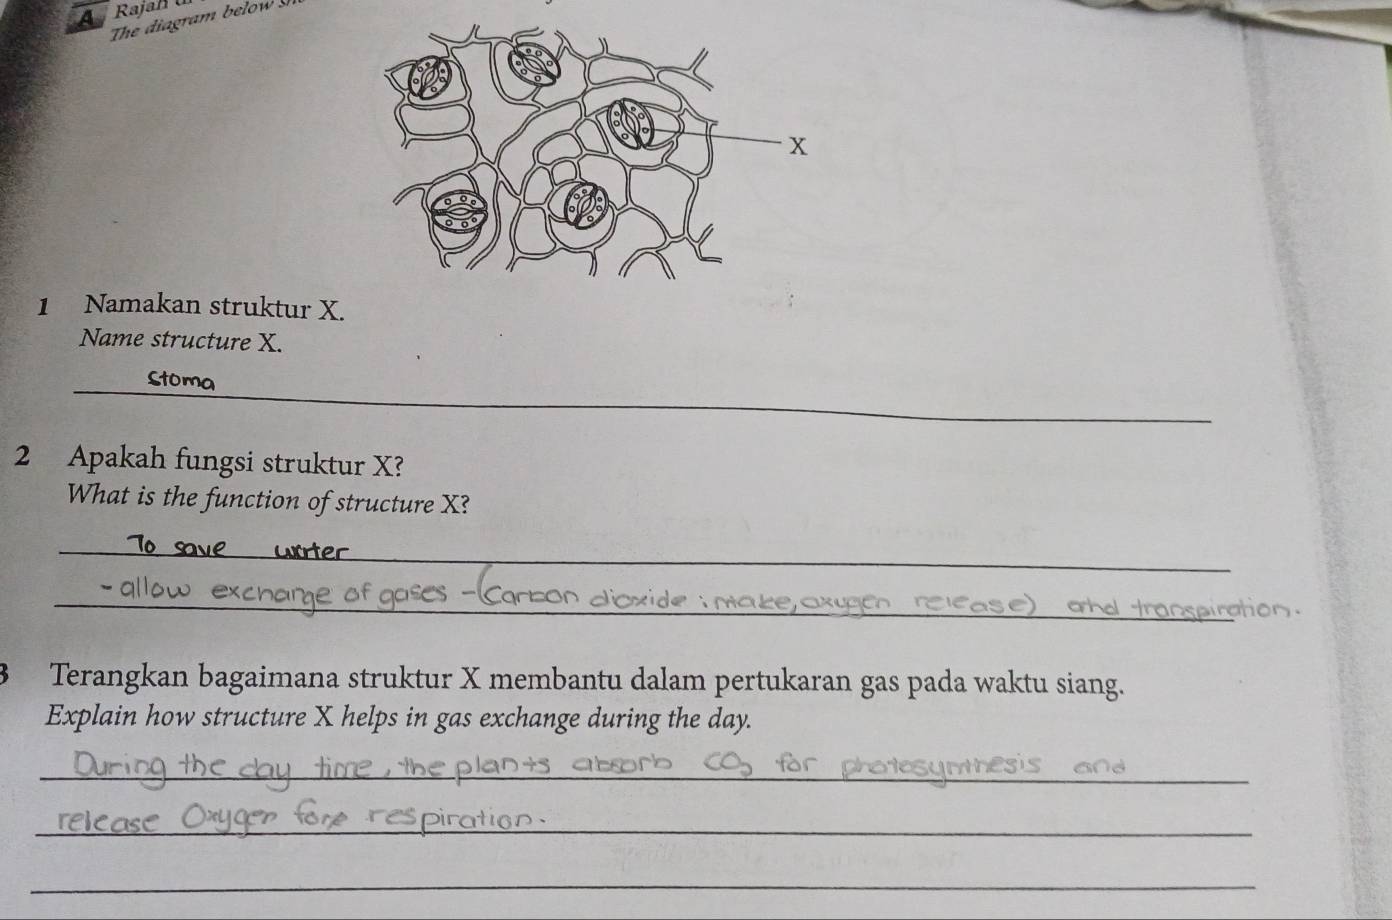 A Rajah
The diagram below
X
1 Namakan struktur X.
Name structure X.
Stoma
2 Apakah fungsi struktur X?
What is the function of structure X?
To save water
- allow exchange of gases - (Carbon dioxide : make, oxygen release) and transpiration.
3 Terangkan bagaimana struktur X membantu dalam pertukaran gas pada waktu siang.
Explain how structure X helps in gas exchange during the day.
During the day time, the plants absorb CO2 for photosynthesis and
release Oxygen for respiration.